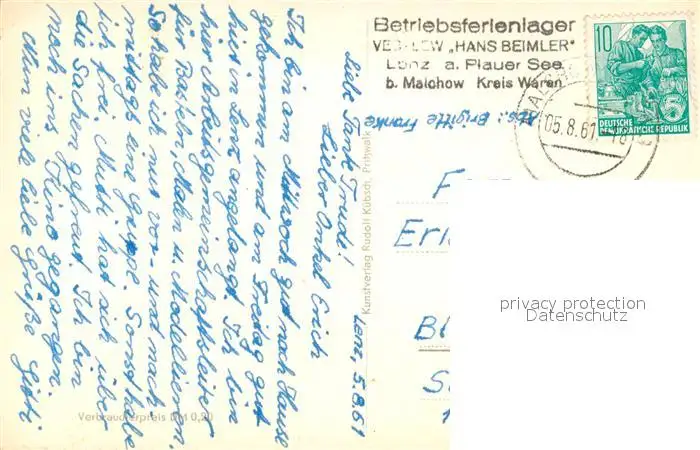 Betriebsferienlager
VEB-LEW „HANS BEIMLER"
Lenz a. Plauer See
b. Malchow Kreis Waren
10
DEUTSCHE
DEMOKRATISCHE REPUBLIK
05.8.61
Abs.: Brigitte Franke
Lenz, 5.8.61
Liebe Tante Trudi!
Lieber Onkel Erich
Ich bin am Mittwoch gut nach Hause
gekommen und am Freitag gut
hier in Lenz angelangt. Ich bin
hier Arbeitsgemeinschaftsleiter
für Basteln, Malen u. Modellieren.
So habe ich nur vor- und nach-
mittags eine Gruppe. Sonst habe
ich frei. Mutti hat sich über
die Sachen gefreut. Ich bin
noch ins Kino gegangen.
Nun viel liebe Grüße Gitti
Kunstverlag Rudolf Kübsch, Pritzwalk
Verbraucherpreis DM 0,20
F
Eri
Bl
S
privacy protection
Datenschutz